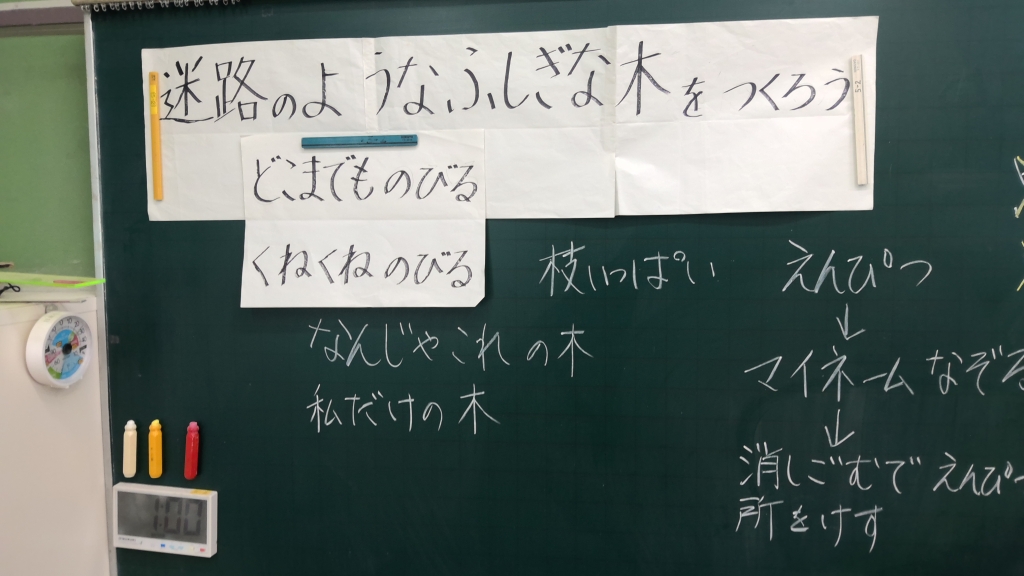 迷路のようなふしぎな木をつくろう
どこまでものびる
くねくねのびる
なんじゃこれの木
私だけの木
枝いっぱい
えんぴつ
↓
マイネームなぞる
↓
消しごむでえんぴつ
所をけす
1:00